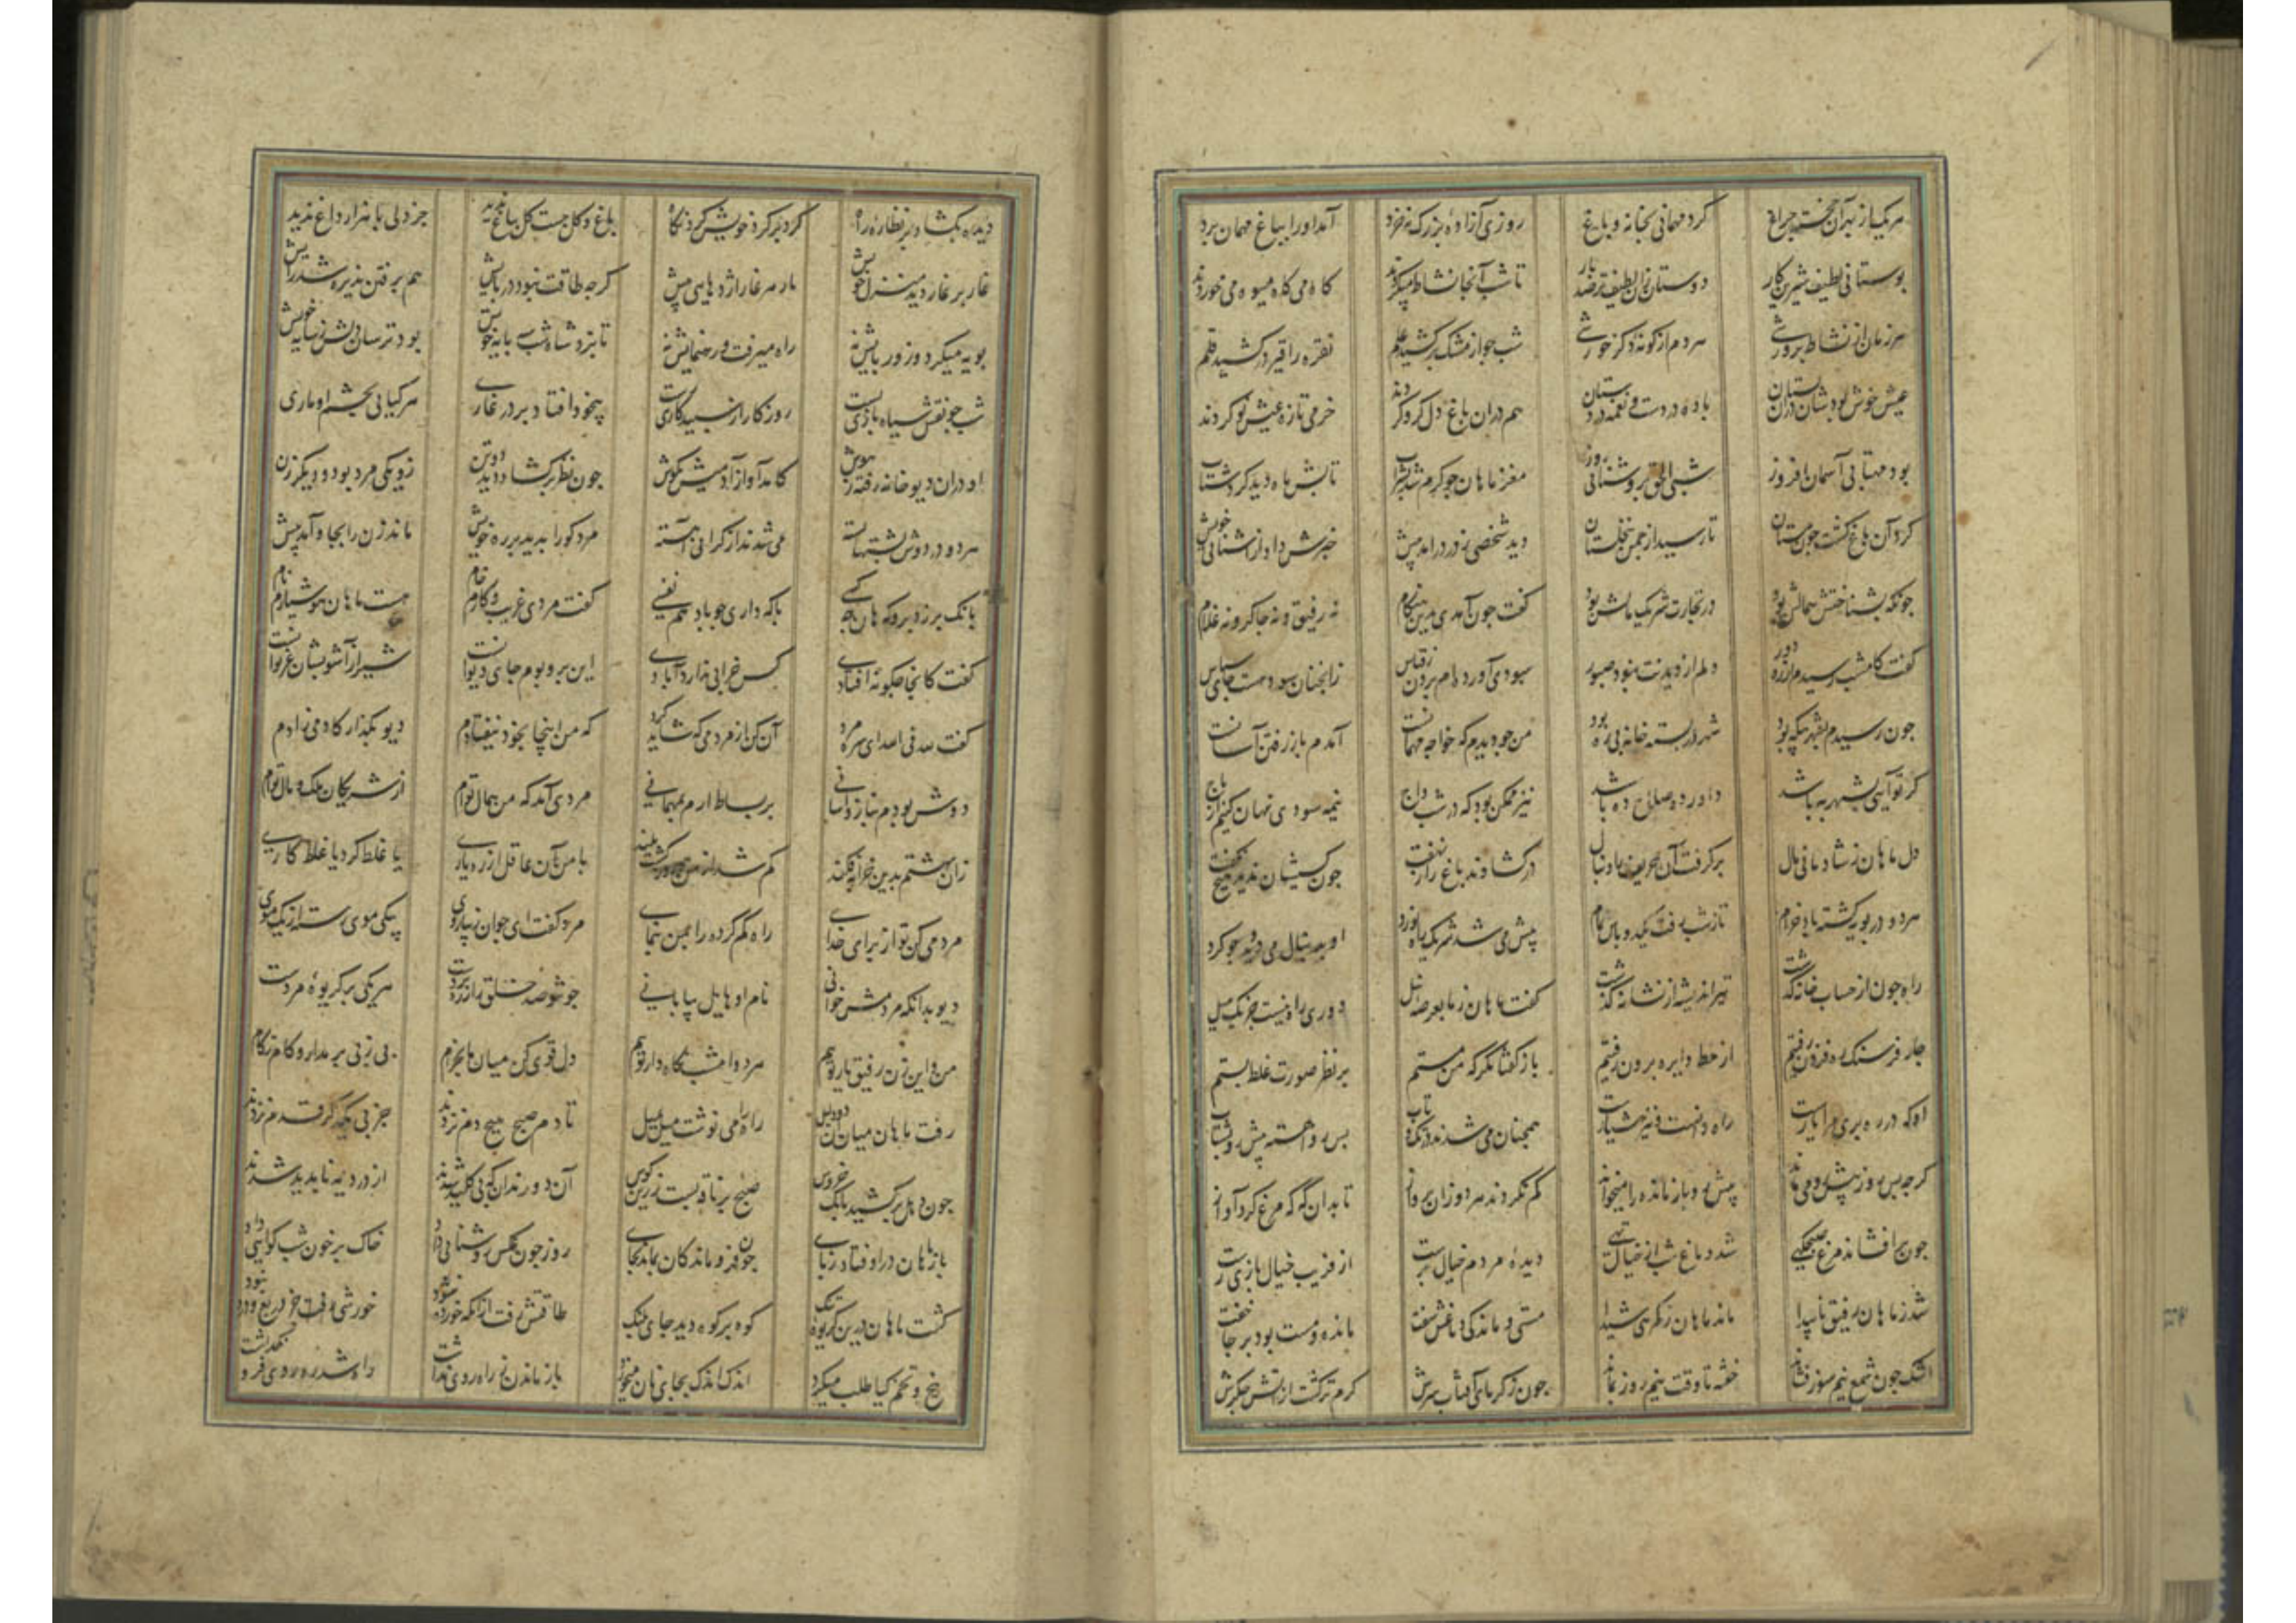 هریک از بهر آن خجسته چراغ کرد مهمانی بخانه و باغ روزی آزاده بزرک نه خرد آمد او را بباغ مهمان برد
بوستانی لطیف شیرین کار دوستان زان لطیف تر صد بار تا شب آنجا نشاط میکردند کاه می کاه میوه می خوردند
هر زمان از نشاط پرورشی هر دم از کونه دکر خورشی شب جو از مشک برکشید علم نقره را قیر درکشید قلم
عیش خوش بودشان دران بستان باده در دست و نغمه در دستان هم دران باغ دل کرو کردند خرمی تازه عیش نو کردند
بود مهتابی آسمان افروز شبی الحق بروشنائی روز مغز ماهان جو کرم شد ز شراب تابش ماه دید کردش آب
کرد آن باغ کشت جون مستان تا رسید از جمن بنخلستان دید شخصی ز دور درآمد پیش خبرش داد از آشنائی خویش
جونکه بشناختش همالش بود در تجارت شریک مالش بود کفت جون آمدی بدین هنکام نه رفیق و نه جاکر و نه غلام
کفت کامشب رسیدم از ره دور دلم از دیدنت نبود صبور سودی آورده ام برون ز قیاس زانجنان سود هست جای سپاس
جون رسیدم بشهر بیکه بود شهر در بسته خانه بی ره بود من جو دیدم که خواجه مهمانست آمدم باز رفتن آسانست
کر تو آیی بشهر به باشد داور ده صلاح ده باشد نیز ممکن بود که در شب داج نیمه سودی نهان کنیم از باج
دل ماهان ز شادمانی مال برکرفت آن حریف را دنبال درکشادند باغ را ز نهفت جون کسیشان ندید هیچ نکفت
هر دو در پویه کشته باد خرام تا ز شب رفت یک دو پاس تمام پیش می شد شریک راه نورد او بدنبال می دوید جو کرد
راه جون از حساب خانه کذشت تیر اندیشه از نشانه کذشت کفت ماهان ز ما بعرصه نیل دوری راه نیست جز یک میل
جار فرسنک ره فزون رفتیم از خط دایره برون رفتیم باز کفتا مکر که من مستم بر نظر صورت غلط بستم
اوکه در رهبری مرا یارست راه دانست و نیز هشیارست همجنان می شدند در تک و تاب پس رو آهسته پیش رو بشتاب
کرجه پس رو ز پیش رو می ماند پیش رو باز مانده را میخواند کم نکردند هر دو زان پرواز تا بدان که که مرغ کرد آواز
جون پر افشاند مرغ صبحکهی شد دماغ شب از خیال تهی دیده مردم خیال پرست از فریب خیال بازی رست
شد ز ماهان رفیق ناپیدا ماند ماهان ز کمرهی شیدا مستی و ماندکی دماغش سفت مانده و مست بود بر جا خفت
اشک جون شمع نیم سوز فشاند خفته تا وقت نیم روز بماند جون ز کرمای آفتاب سرش کرم تر کشت از آتش جکرش
دیده بکشاد بر نظاره راه کرد بر کرد خویش کرد نکاه باغ و کل جست کل بباغ ندید جز دلی با هزار داغ ندید
غار بر غار دید منزل خویش مار هر غار از اژدهایی بیش کرجه طاقت نبود در پایش هم برفتن پذیره شد رایش
پویه میکرد و زور پایش نه راه میرفت و رهنمایش نه تا نزد شاه شب بپایه خویش بود ترسان دلش ز سایه خویش
شب جو نقش سیاه بازی بست روزکار از سپیدکاری رست بیخود افتاد بر در غاری هر کیایی بچشم او ماری
او دران دیوخانه رفته ز هوش کامد آواز آدمیش بکوش جون نظر برکشاد دید دو تن زو یکی مرد بود و دیکر زن
هر دو در دوش پشتها بسته می شدند از کرانی آهسته مرد کو را بدید بر ره خویش ماند زن را بجا و آمد پیش
بانک بر زد برو که هان جه کسی با که داری جو باد هم نفسی کفت مردی غریب و کارم خام هست ماهان هوشیارم نام
کفت کانجا جکونه افتادی کس خرابی ندارد آبادی این بر و بوم جای دیوانست شیر از آشوبشان غریوانست
کفت لله فی الله ای سره مرد آن کن از مردمی که شاید کرد که من اینجا بخود نیفتادم دیو بکذار کادمی زادم
دوش بودم بناز و آسانی بر بساط ارم بمهمانی مردی آمد که من همال توام از شریکان ملک و مال توام
زان بهشتم بدین خرابه فکند کم شد از من جو روز کشت بلند با من آن عاقل از ره یاری یا غلط کرد یا غلط کاری
مردمی کن تو از برای خدای راه کم کرده را بمن بنمای مرد کفت ای جوان زیباروی بیکی موی رسته از یک موی
دیو بد آنکه مردمش خوانی نام او هایل بیابانی جو تو صد خلق را ز ره بردست هریکی بر کریوه مردست
من و این زن رفیق یار توایم هر دو امشب نکاهدار توایم دل قوی کن میان ما بخرام پی ز پی بر مدار و کام ز کام
رفت ماهان میان آن دو دلیل راه را می نوشت میل بمیل تا دم صبح هیچ دم نزدند جز پی یکدکر قدم نزدند
جون دهل برکشید بانک خروس صبح بر ناقه بست زرین کوس آن دو زندان که بی کلید شدند از در دیده ناپدید شدند
باز ماهان در اوفتاد ز پای جون فرو ماندکان بماند بجای روز جون عکس روشنایی داد خاک بر خون شب کواهی داد
کشت ماهان درین کریوه تنک کوه بر کوه دید جای پلنک طاقتش رفت از آنکه خورد نبود خورشی رفت جز دریغ و درد نبود
بیخ و تخم کیا طلب میکرد اندک اندک بجای نان میخورد باز ماندن ز راه روی نداشت راه شد ره روی فرو نکذاشت